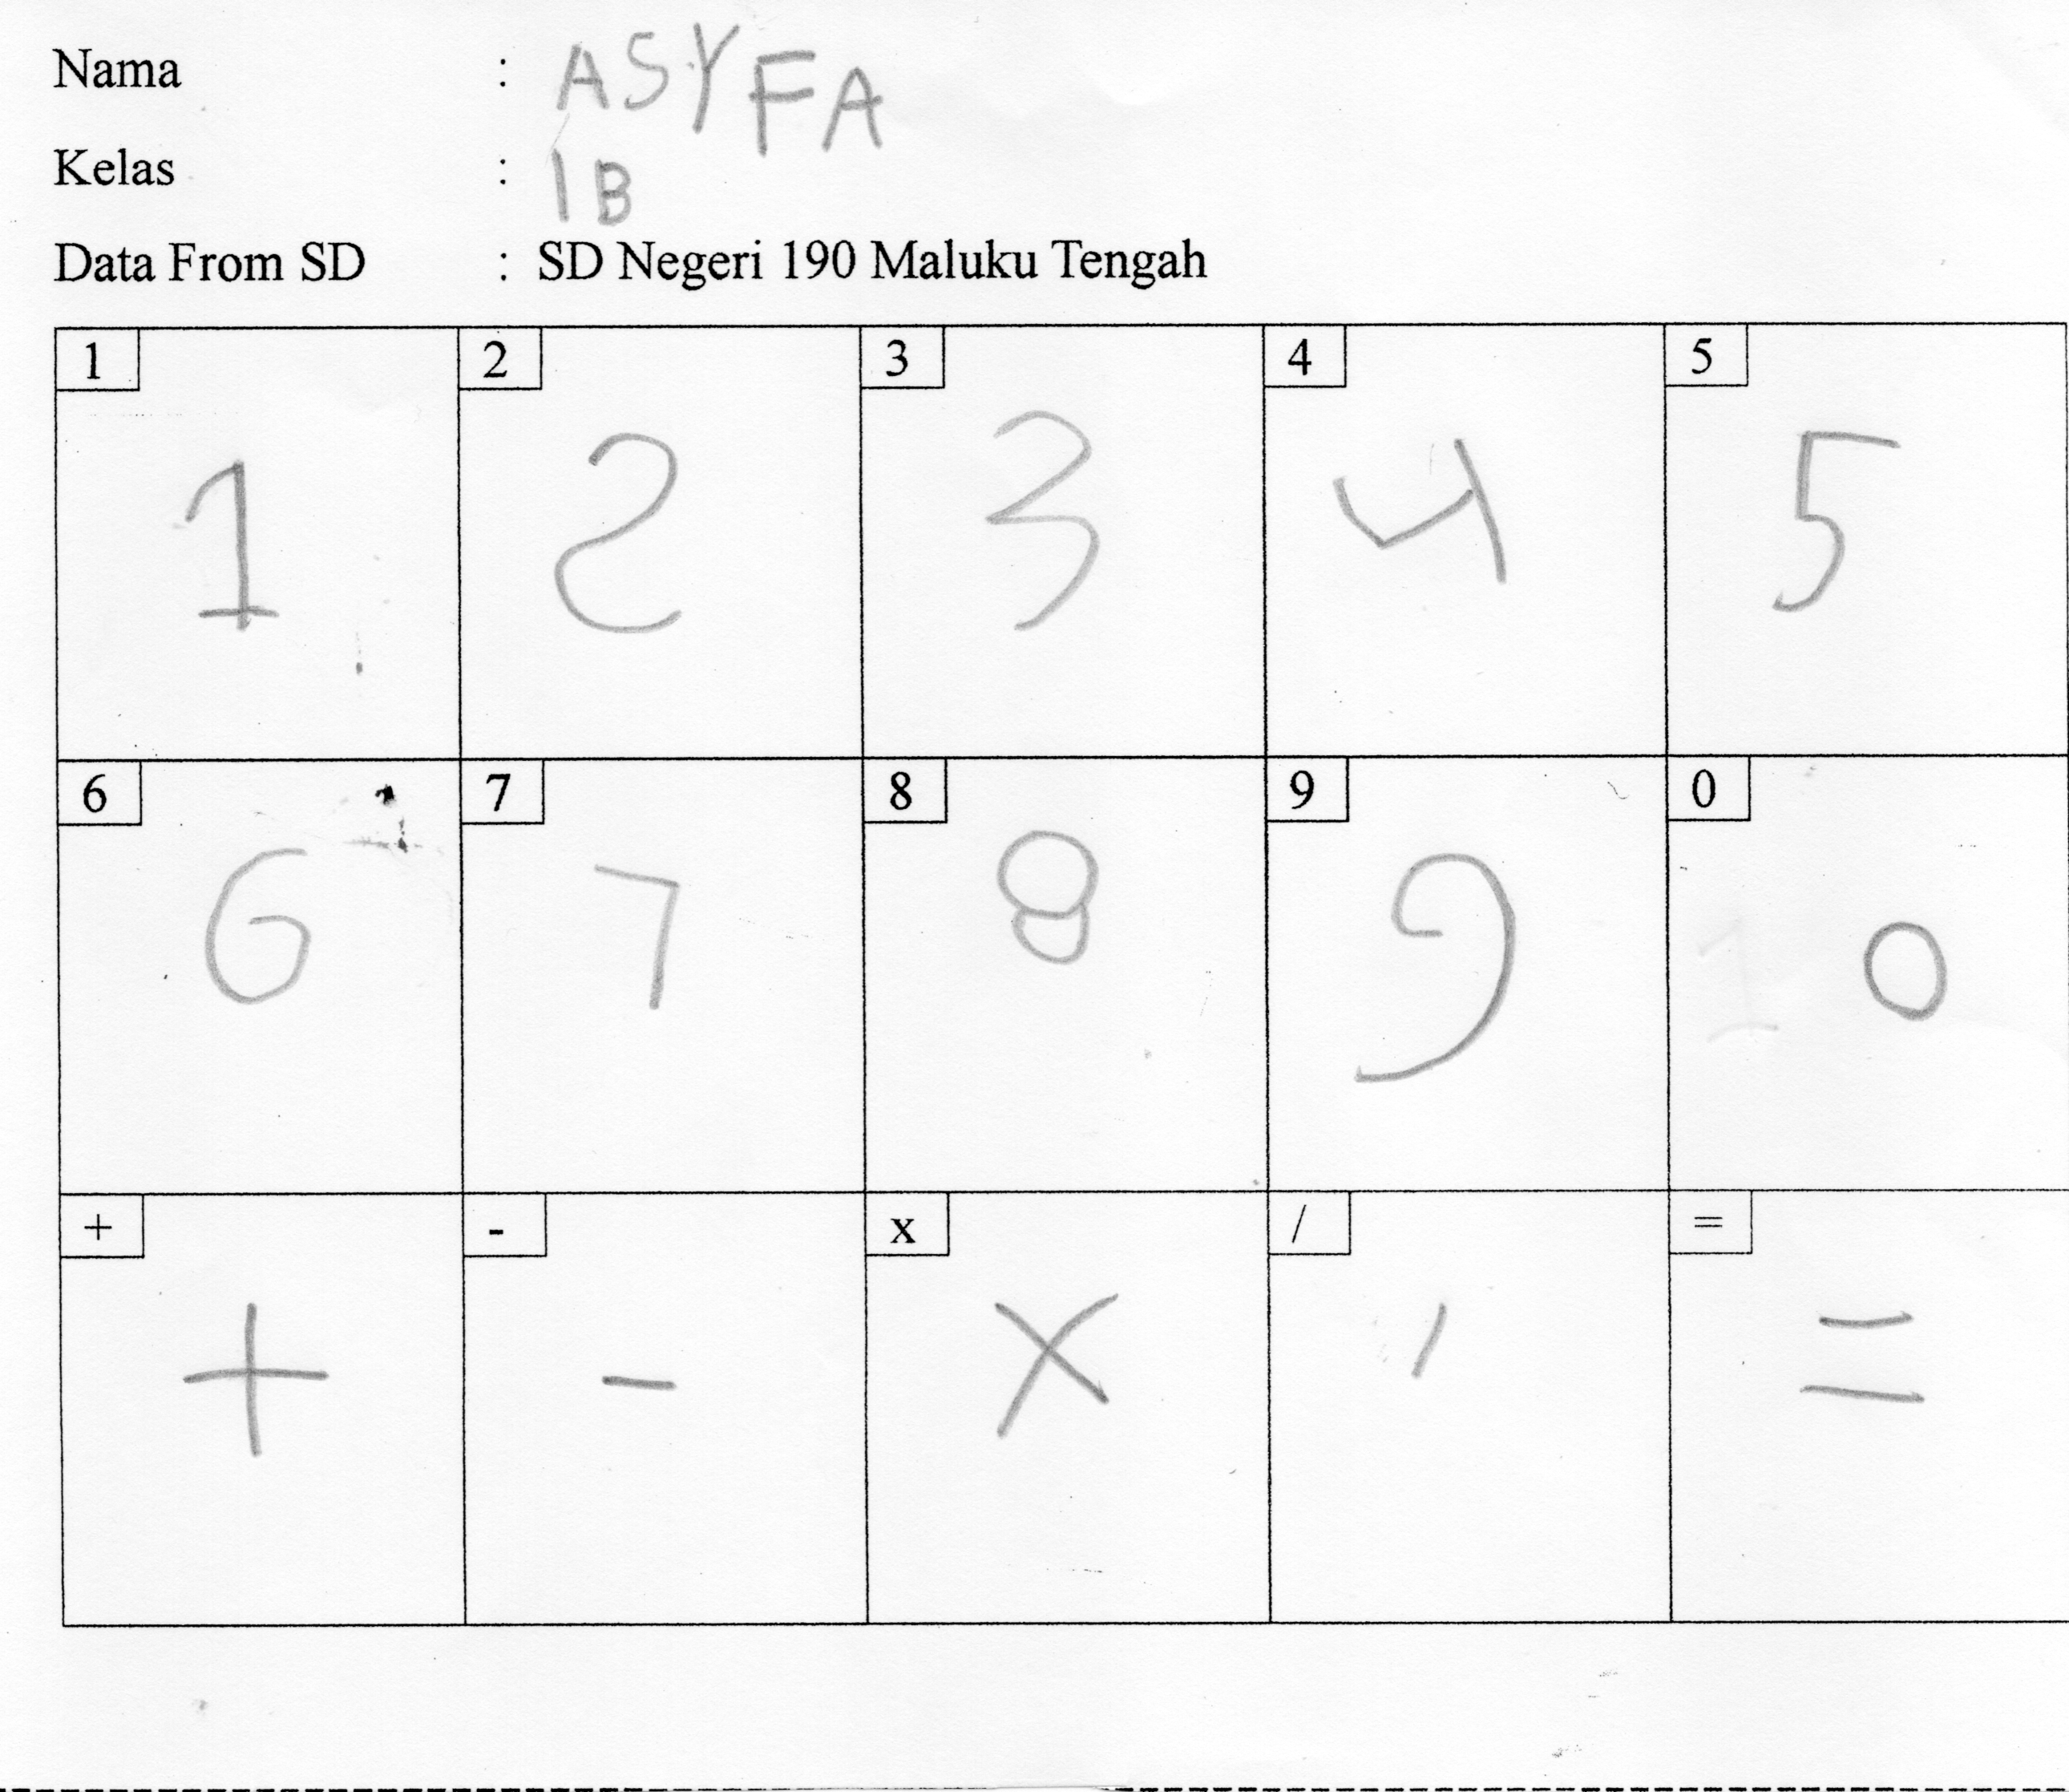 Nama : ASYFA
Kelas : 1B
Data From SD : SD Negeri 190 Maluku Tengah
1 2 3 4 5
1 2 3 4 5
6 7 8 9 0
6 7 8 9 0
+ - x / =
+ - x / =